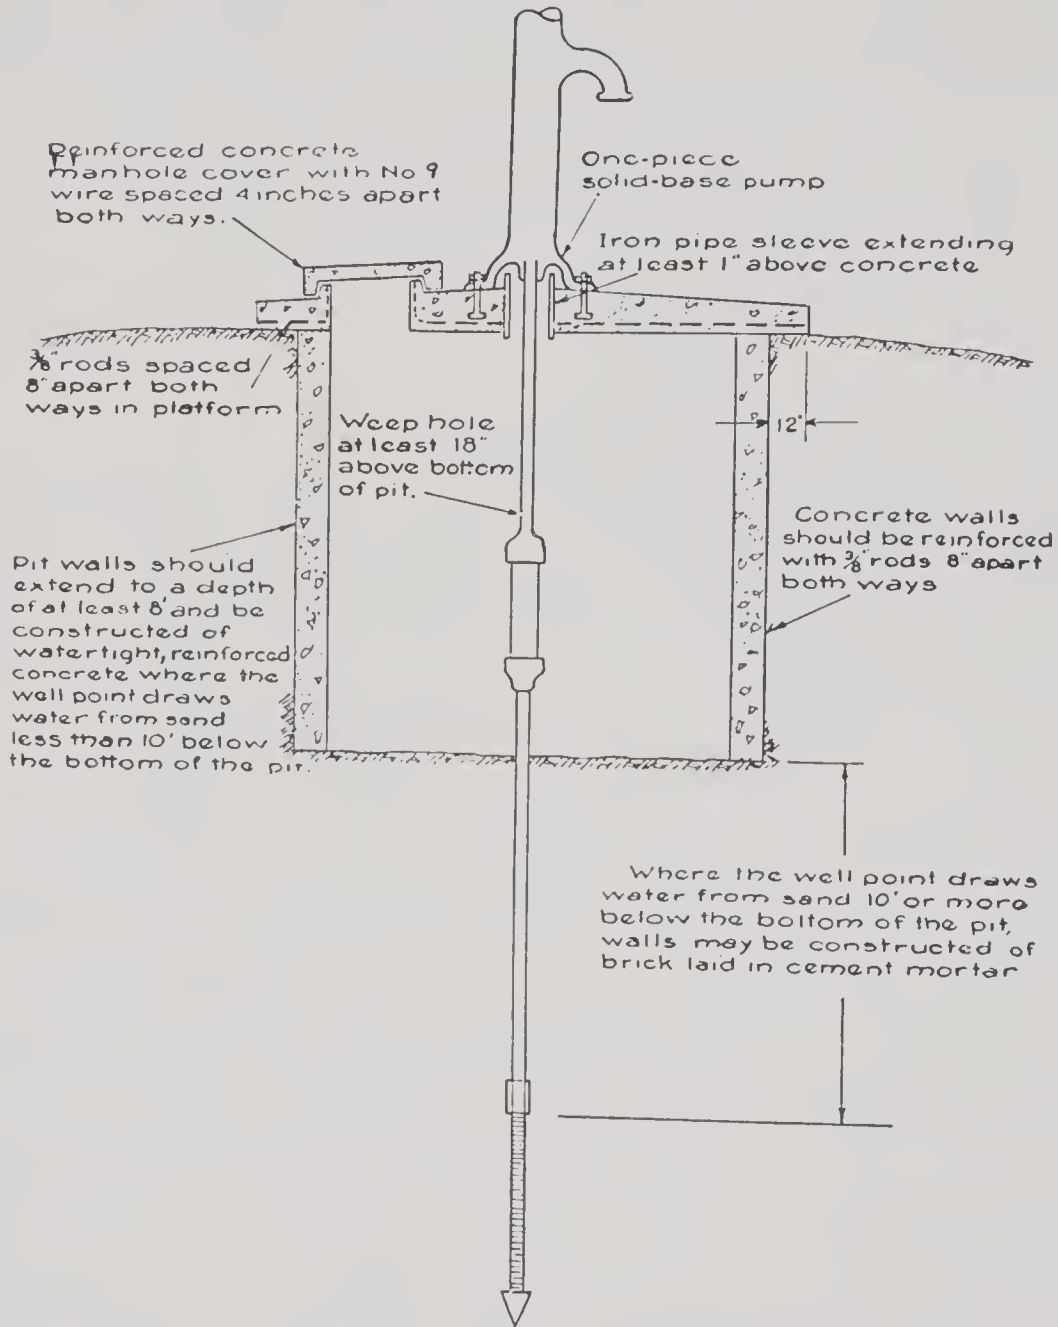 Reinforced concrete
manhole cover with No 9
wire spaced 4 inches apart
both ways.
One-piece
solid-base pump
Iron pipe sleeve extending
at least 1" above concrete
3/8" rods spaced
8" apart both
ways in platform
Weep hole
at least 18"
above bottom
of pit.
12"
Concrete walls
should be reinforced
with 3/8" rods 8" apart
both ways
Pit walls should
extend to a depth
of at least 8' and be
constructed of
watertight, reinforced
concrete where the
well point draws
water from sand
less than 10' below
the bottom of the pit.
Where the well point draws
water from sand 10' or more
below the bottom of the pit,
walls may be constructed of
brick laid in cement mortar